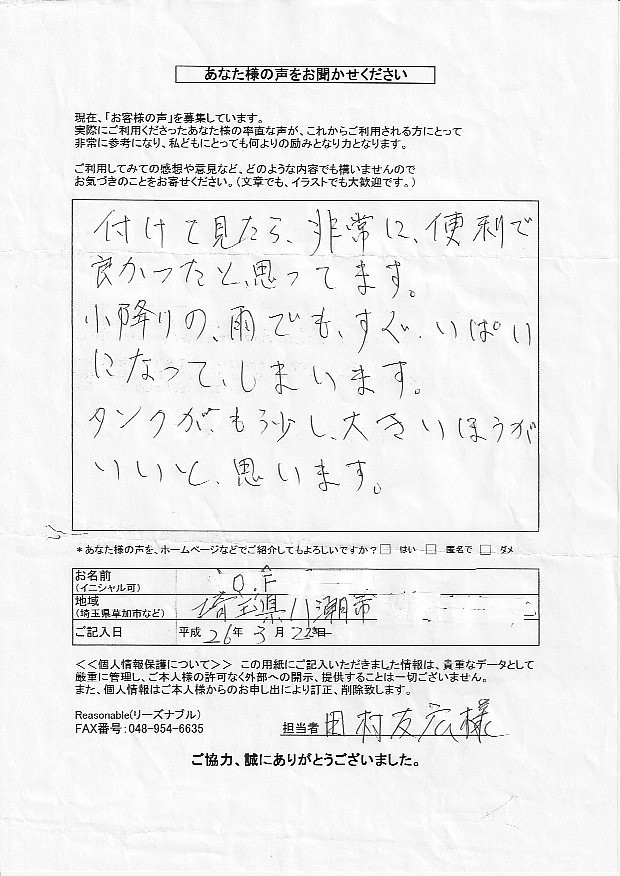 あなた様の声をお聞かせください
現在、「お客様の声」を募集しています。
実際にご利用くださったあなた様の率直な声が、これからご利用される方にとって
非常に参考になり、私どもにとっても何よりの励みとなり力となります。
ご利用してみての感想や意見など、どのような内容でも構いませんので
お気づきのことをお寄せください。(文章でも、イラストでも大歓迎です。)
付けて見たら、非常に、便利で
良かつたと、思ってます。
小降りの、雨でも、すぐ、いぱい
になって、しまいます。
タンクが、もう少し、大きいほうが
いいと、思います。
*あなた様の声を、ホームページなどでご紹介してもよろしいですか?□ はい □ 匿名で □ ダメ
お名前
(イニシャル可)
O.F
地域
(埼玉県草加市など)
埼玉県八潮市
ご記入日 平成 26年 3月 22日
<<個人情報保護について>> この用紙にご記入いただきました情報は、貴重なデータとして
厳重に管理し、ご本人様の許可なく外部への開示、提供することは一切ございません。
また、個人情報はご本人様からのお申し出により訂正、削除致します。
Reasonable(リーズナブル)
FAX番号:048-954-6635
担当者 田村友広様
ご協力、誠にありがとうございました。